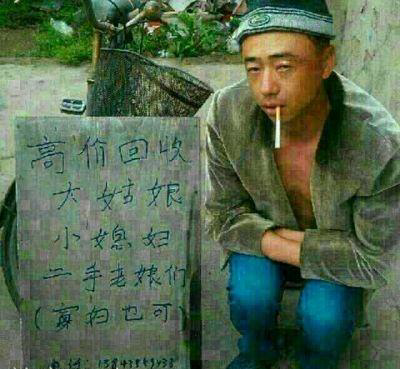 高价回收
大姑娘
小媳妇
二手老娘们
(寡妇也可)
电话: